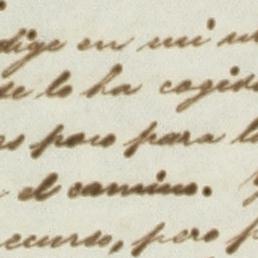 dige en mi
se lo ha cogido
es poco para l
el camino.
ecurso, pero p